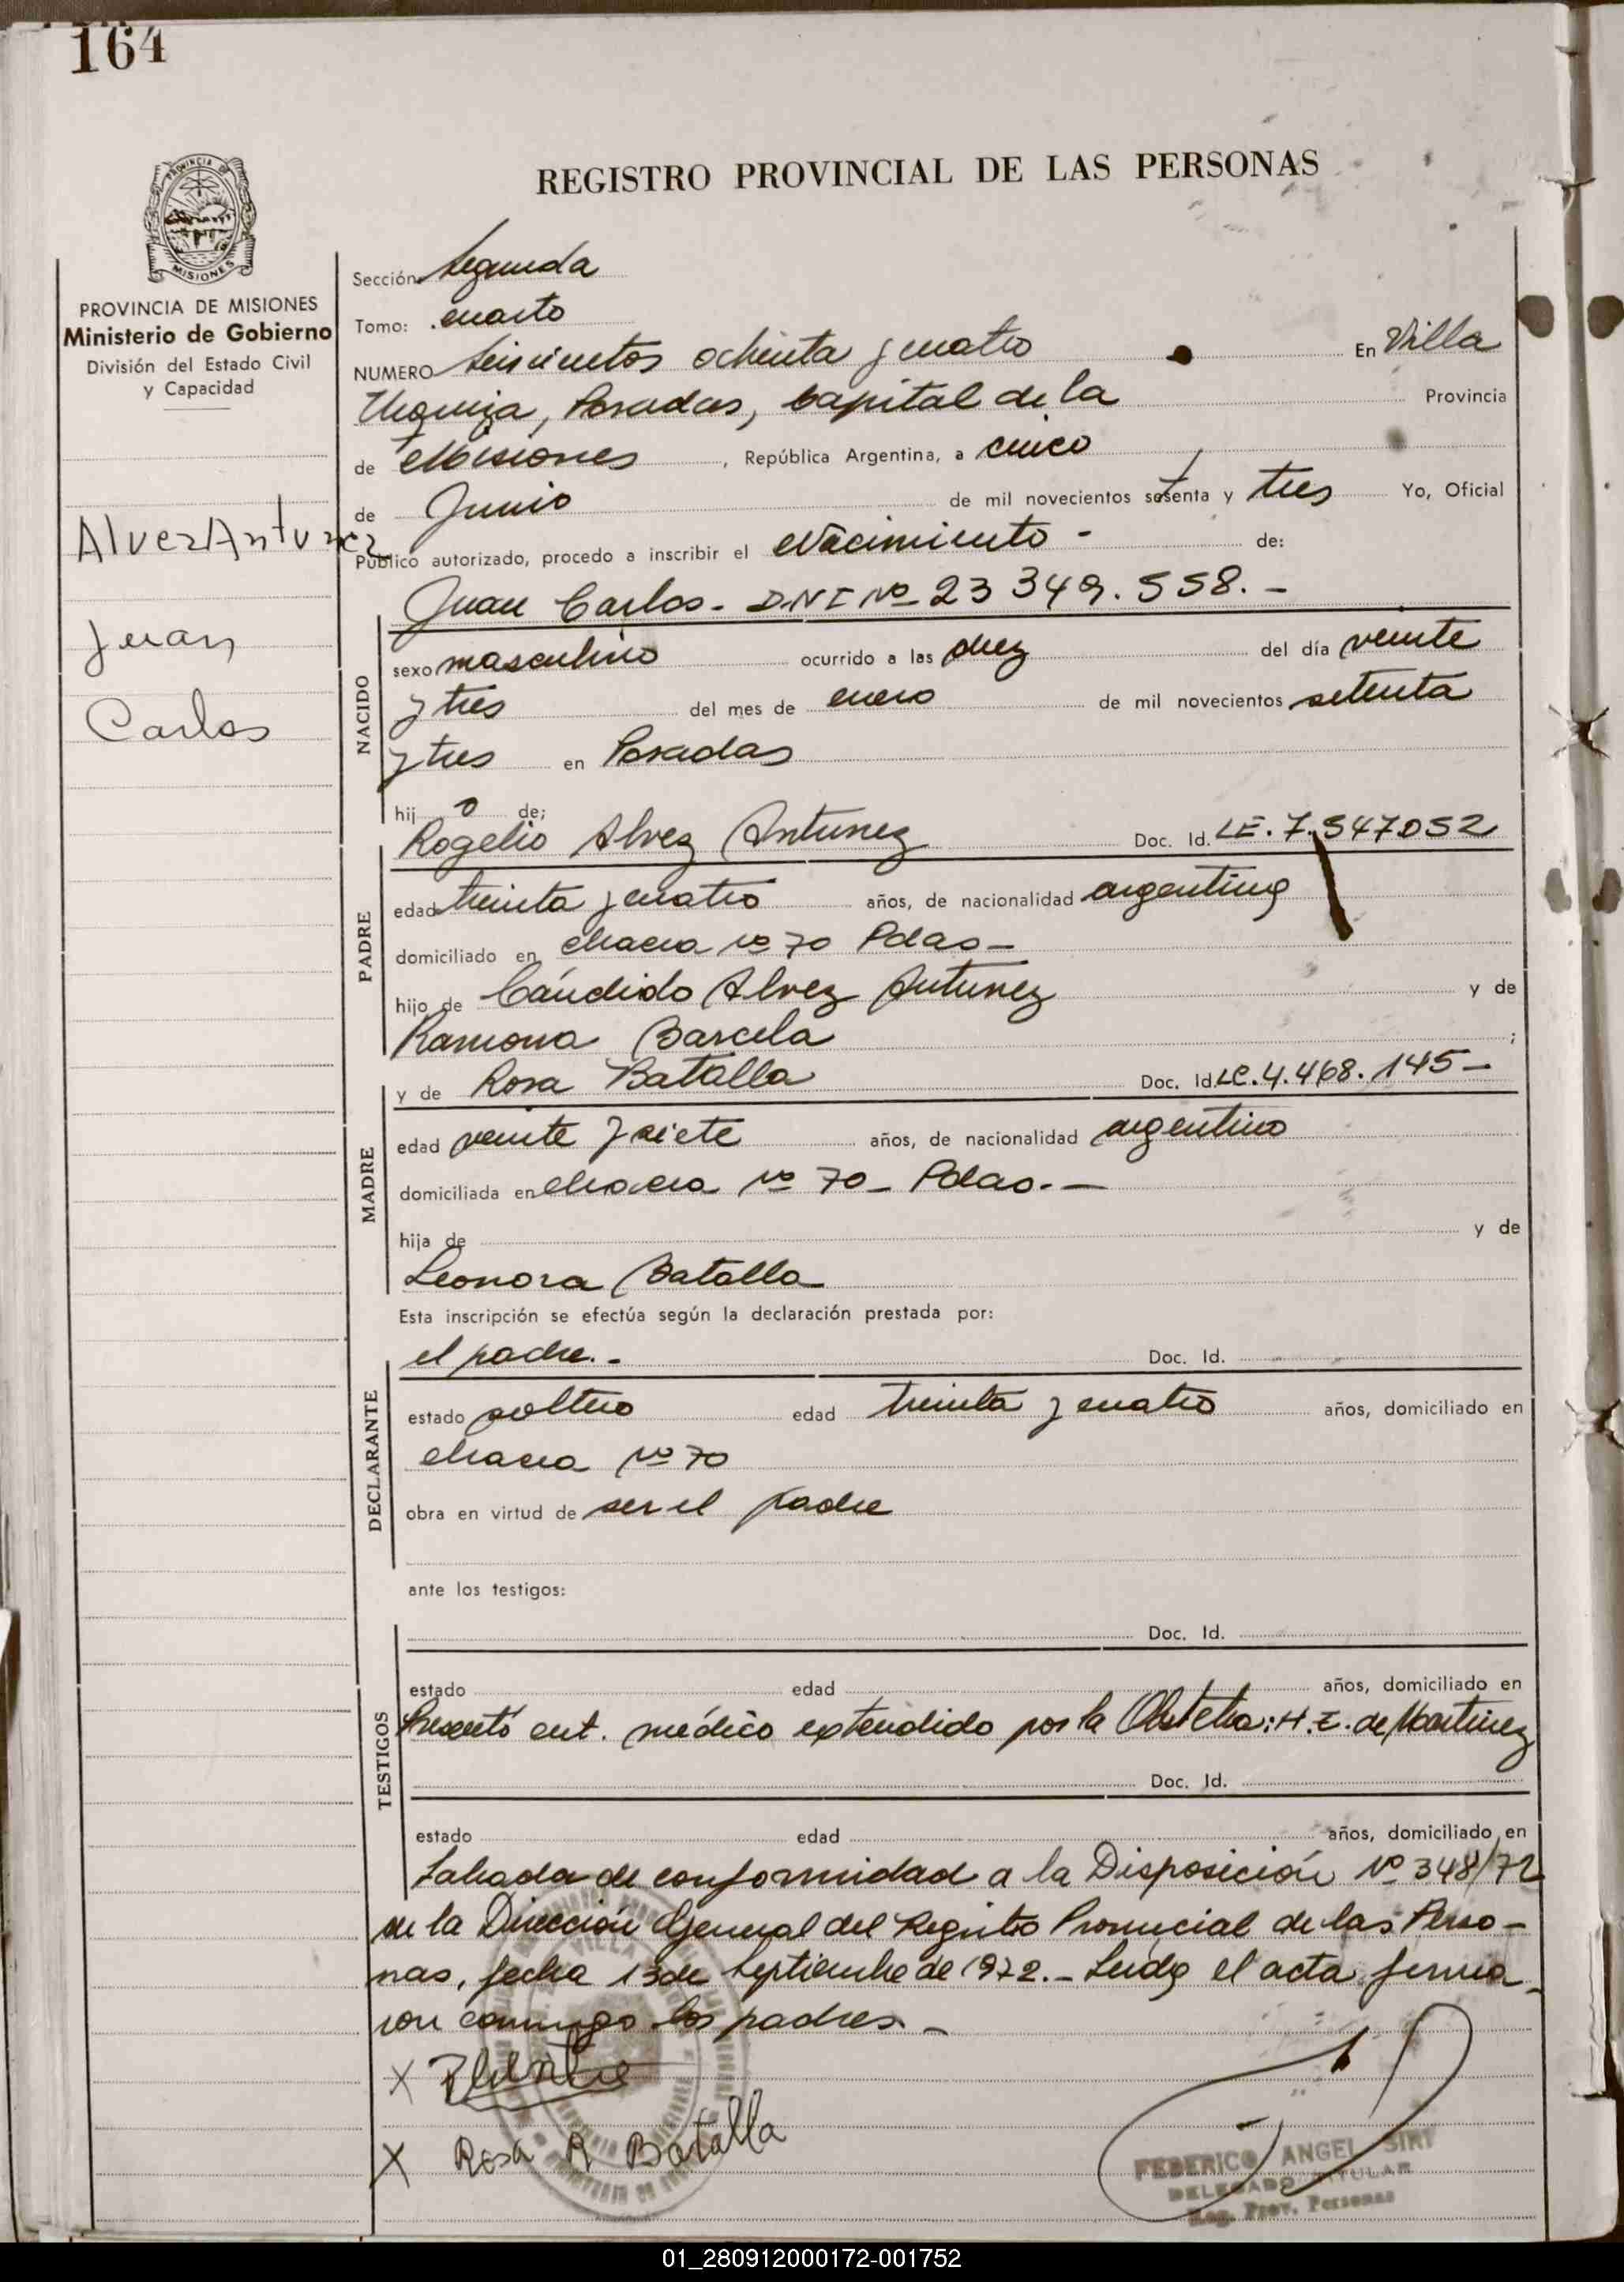 164
REGISTRO PROVINCIAL DE LAS PERSONAS
PROVINCIA DE
MISIONES
PROVINCIA DE MISIONES
Ministerio de Gobierno
División del Estado Civil
y Capacidad
Alvez Antunez
Juan
Carlos
Sección Segunda
Tomo: cuarto
NUMERO Seiscientos ochenta y cuatro En Villa
Urquiza, Posadas, Capital de la Provincia
de Misiones, República Argentina, a cinco
de Junio de mil novecientos setenta y tres Yo, Oficial
Público autorizado, procedo a inscribir el Nacimiento - de:
Juan Carlos - DNI Nº 23 349.558.-
NACIDO
sexo masculino ocurrido a las diez del día veinte
y tres del mes de enero de mil novecientos setenta
y tres en Posadas
hijo de;
Rogelio Alvez Antunez Doc. Id. LE. 7.547052
PADRE
edad treinta y cuatro años, de nacionalidad argentina
domiciliado en chacra Nº 70 Pdas-
hijo de Cándido Alvez Antunez y de
Ramona Barcela ;
y de Rosa Batalla Doc. Id LC. 4.468.145-
MADRE
edad veinte y siete años, de nacionalidad argentino
domiciliada en chacra Nº 70- Pdas.-
hija de y de
Leonora Batalla
Esta inscripción se efectúa según la declaración prestada por:
el padre.- Doc. Id.
DECLARANTE
estado soltero edad treinta y cuatro años, domiciliado en
chacra Nº 70
obra en virtud de ser el padre
ante los testigos:
Doc. Id.
TESTIGOS
estado edad años, domiciliado en
Presentó cert. médico extendido por la Obstetra: H.E. de Martinez
Doc. Id.
estado edad años, domiciliado en
Labrada de conformidad a la Disposición Nº 348/72
de la Dirección General del Registro Provincial de las Perso-
nas, fecha 13 de Septiembre de 1972.- Leída el acta firma-
ron conmigo los padres.-
X
X Rosa R Batalla
FEDERICO ANGEL SIRI
DELEGADO TITULAR
Reg. Prov. Personas
01_280912000172-001752